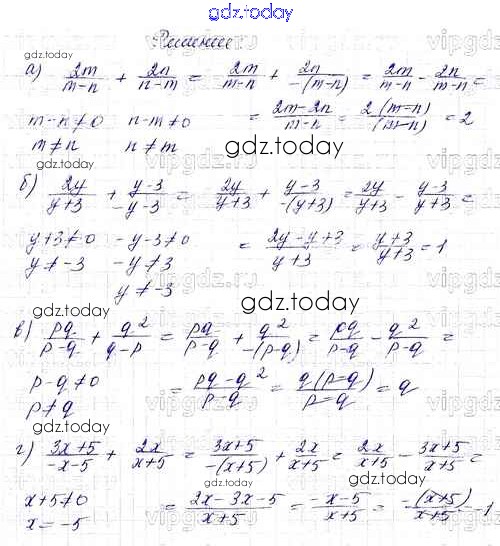 gdz.today
Решение:
gdz.today
а) 2m/(m-n) + 2n/(n-m) = 2m/(m-n) + 2n/(-(m-n)) = 2m/(m-n) - 2n/(m-n) =
m-n≠0 n-m≠0 = (2m-2n)/(m-n) = 2(m-n)/(m-n) = 2
m≠n n≠m
gdz.today
gdz.today
б) 2y/(y+3) + (y-3)/(-y-3) = 2y/(y+3) + (y-3)/(-(y+3)) = 2y/(y+3) - (y-3)/(y+3) =
y+3≠0 -y-3≠0 = (2y-y+3)/(y+3) = (y+3)/(y+3) = 1
y≠-3 -y≠3
y≠-3
gdz.today
gdz.today
в) pq/(p-q) + q²/(q-p) = pq/(p-q) + q²/(-(p-q)) = pq/(p-q) - q²/(p-q) =
p-q≠0 = (pq-q²)/(p-q) = q(p-q)/(p-q) = q
p≠q
gdz.today
gdz.today
г) (3x+5)/(-x-5) + 2x/(x+5) = (3x+5)/(-(x+5)) + 2x/(x+5) = 2x/(x+5) - (3x+5)/(x+5) =
gdz.today
x+5≠0 = (2x-3x-5)/(x+5) = (-x-5)/(x+5) = -(x+5)/(x+5) = -1
x=-5